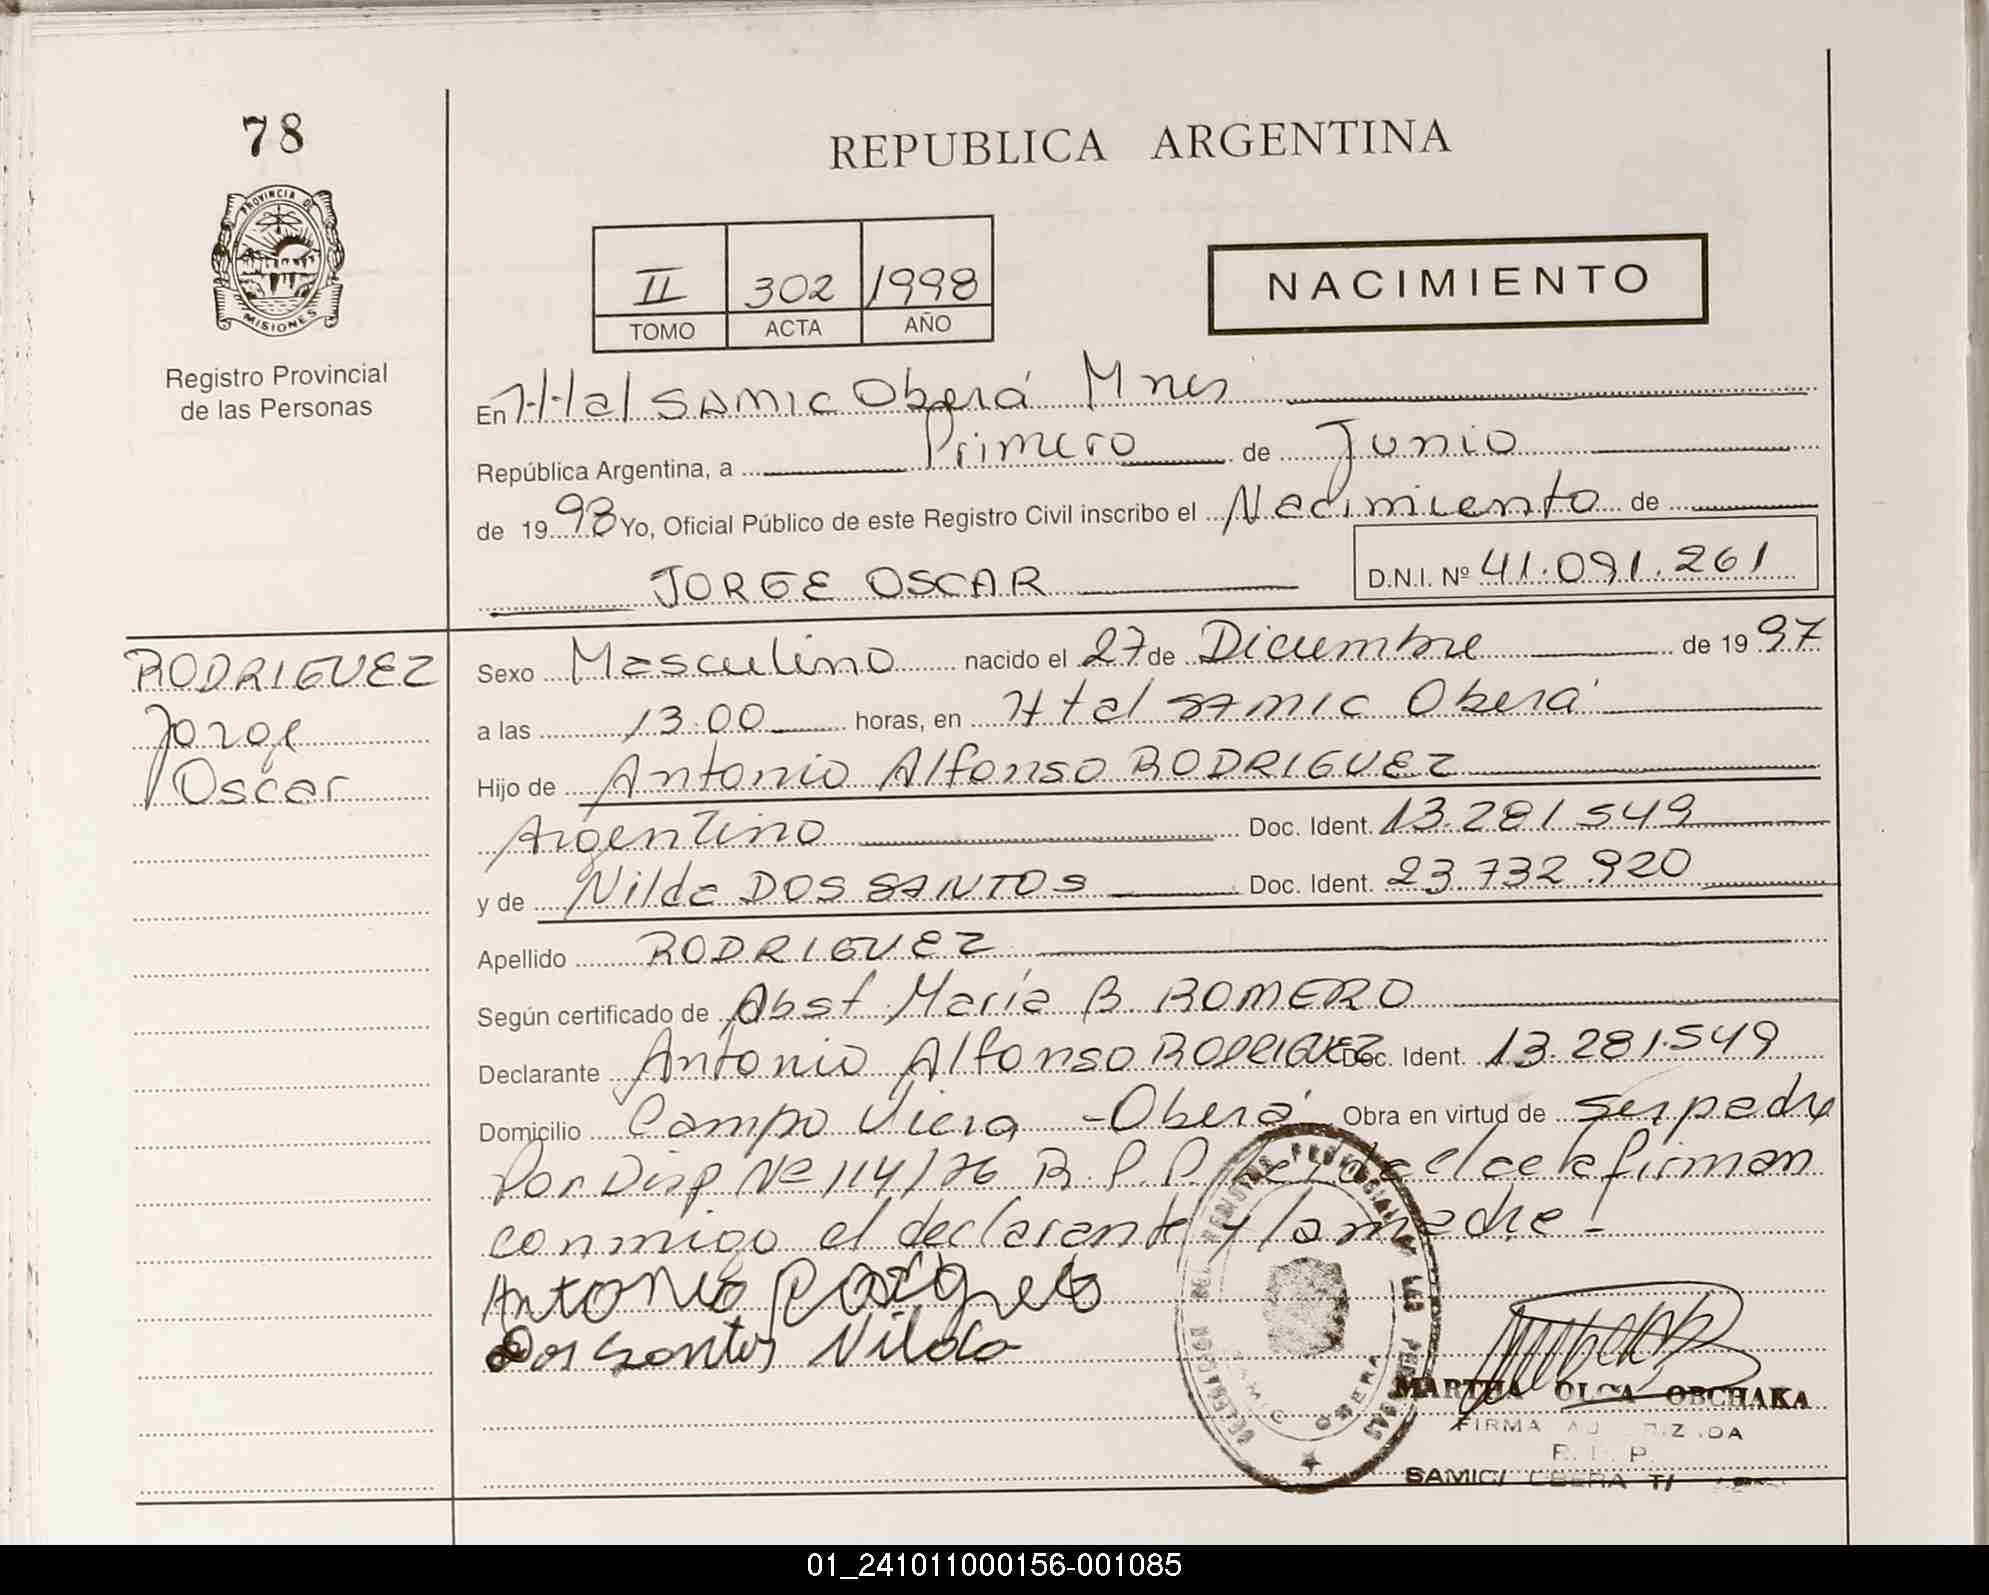 78
REPUBLICA ARGENTINA
PROVINCIA DE
MISIONES
Registro Provincial
de las Personas
II 302 1998
TOMO ACTA AÑO
NACIMIENTO
En Htal SAMIC Oberá Mnes
República Argentina, a Primero de Junio
de 1998 Yo, Oficial Público de este Registro Civil inscribo el Nacimiento de
JORGE OSCAR D.N.I. Nº 41.091.261
RODRIGUEZ
Jorge
Oscar
Sexo Masculino nacido el 27 de Diciembre de 1997
a las 13.00 horas, en Htal SAMIC Oberá
Hijo de Antonio Alfonso RODRIGUEZ
Argentino Doc. Ident. 13.281.549
y de Nilda DOS SANTOS Doc. Ident. 23.732.920
Apellido RODRIGUEZ
Según certificado de Obst María B. ROMERO
Declarante Antonio Alfonso RODRIGUEZ Doc. Ident. 13.281.549
Domicilio Campo Viera - Oberá Obra en virtud de ser padre
Por Disp Nº 114/76 R.P.P. el acta firman
conmigo el declarante y la madre-
Antonio
Dos Santos Nilda
OBERA
MARTHA OLGA OBCHAKA
FIRMA AUTORIZADA
SAMIC/ OBERA
01_241011000156-001085